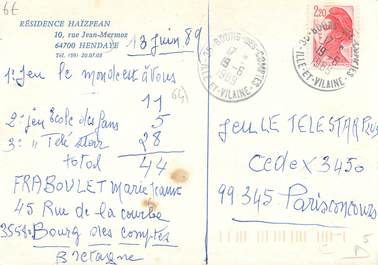 6£
RÉSIDENCE HAIZPEAN
10, rue Jean-Mermoz
64700 HENDAYE
Tél. (59) 20.07.08
18 juin 89
1° jeu le monde est à vous
11
2° jeu Ecole des fans 5
3° Télé star 28
total 44
FRABOULET Marie Jeanne
45 Rue de la courbe
35580 Bourg des comptes
Bretagne
35-BOURG-DES-COMPTES
19-6
1989
ILLE-ET-VILAINE
2,20
35-BOURG-DES-COMPTES
19-6
1989
ILLE-ET-VILAINE
jeu LE TELESTAR
Cedex 3450
99 345 Parisconcours
5